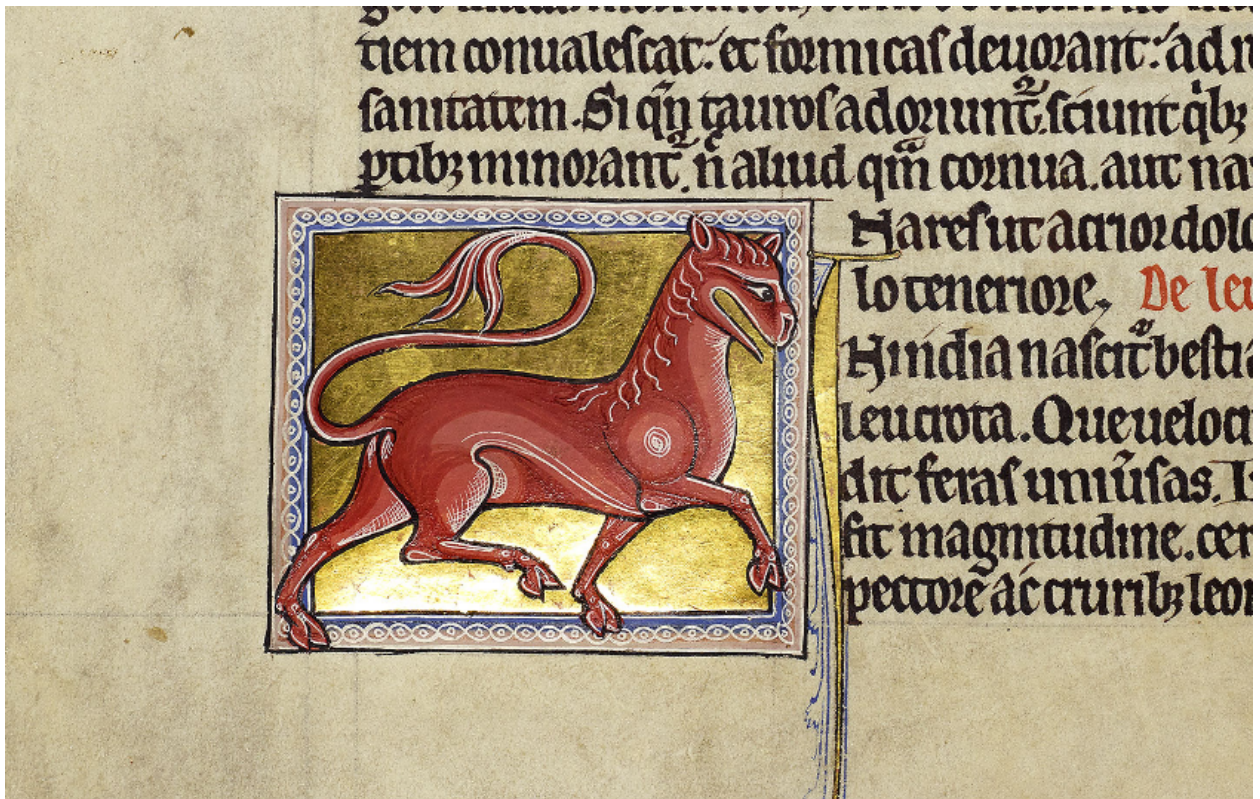 tiem conualescat: et formicas deuorant: ad r
sanitatem. Si qn̄ tauros adoriunt᷑. sciunt qͥbꝫ
ꝑtibꝫ minorant᷑. n̄ aliud qͣm cornua. aut na
Nares ut acrior dolo
lo teneriore, De leu
N india nascit᷑ bestia
leucrota. Que ueloci
dit feras uniu̅sas. I
sit magnitudine. cer
pectore ac cruribꝫ leo